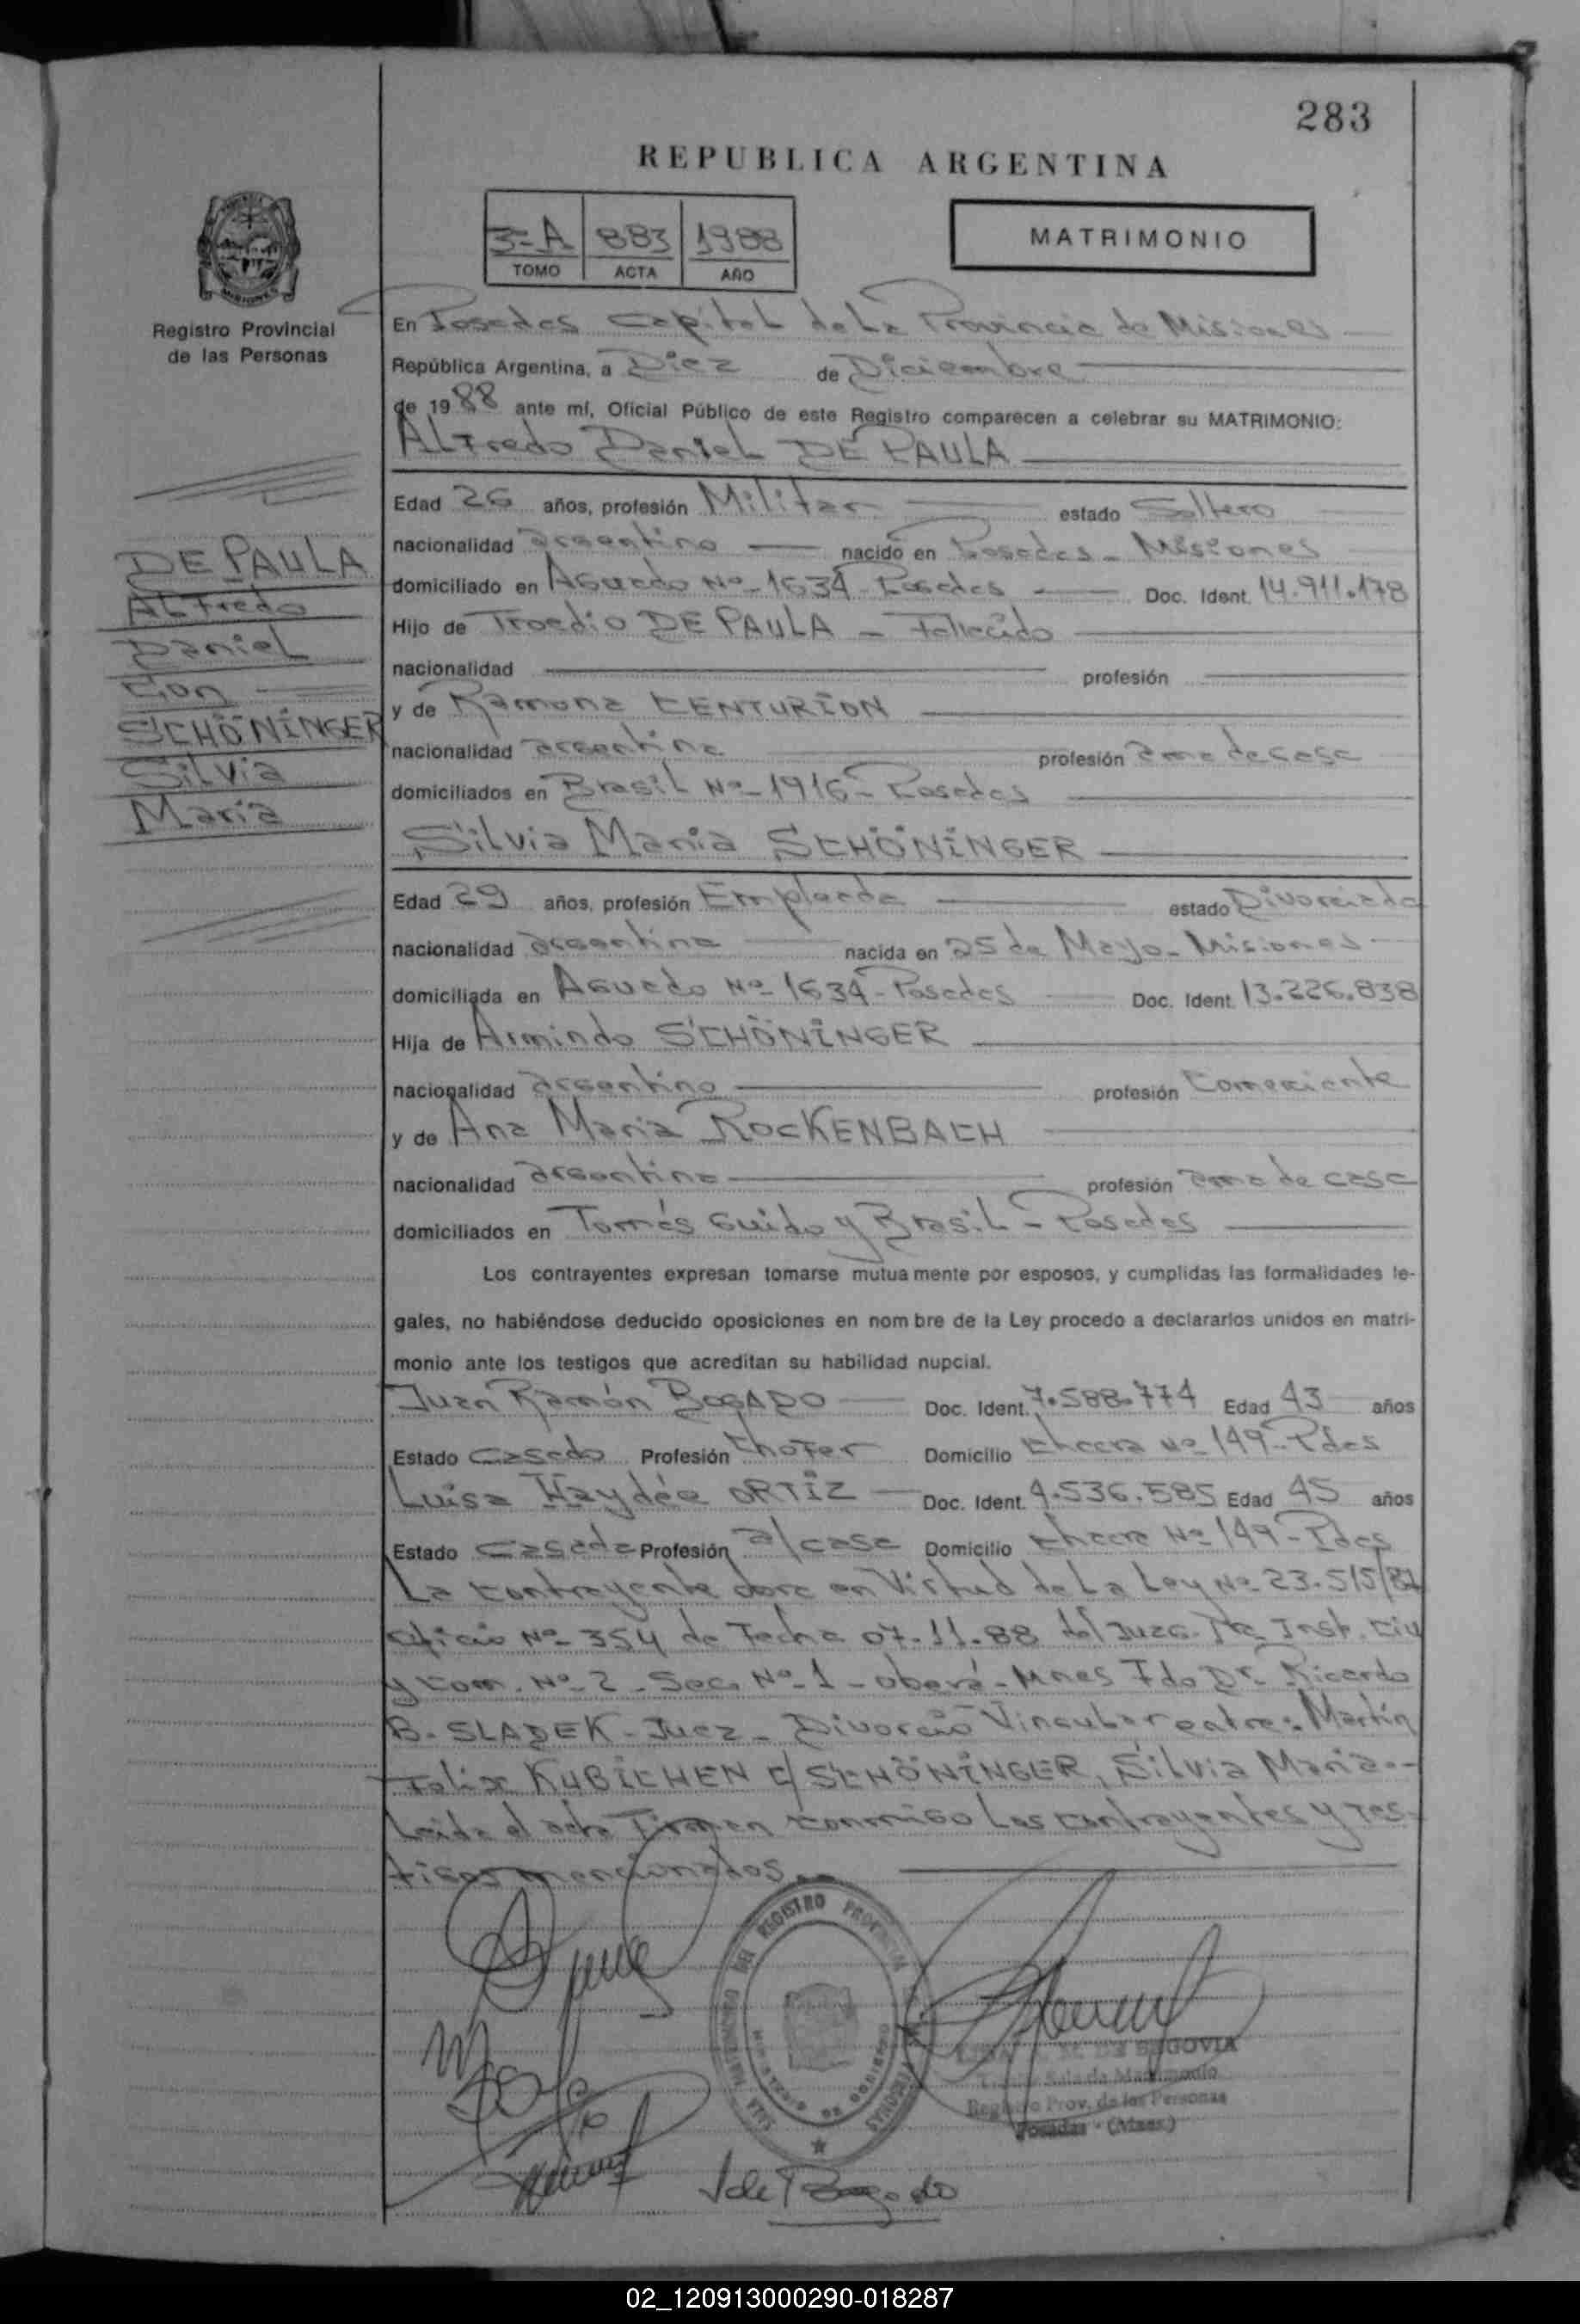 283
REPUBLICA ARGENTINA
3-A 883 1988
TOMO ACTA AÑO
MATRIMONIO
MISIONES
Registro Provincial
de las Personas
DE PAULA
Alfredo
Daniel
Con
SCHÖNINGER
Silvia
Maria
En Posadas Capital de La Provincia de Misiones
República Argentina, a Diez de Diciembre
de 1988 ante mí, Oficial Público de este Registro comparecen a celebrar su MATRIMONIO:
Alfredo Daniel DE PAULA
Edad 26 años, profesión Militar estado Soltero
nacionalidad argentino nacido en Posadas - Misiones
domiciliado en Aguado Nº 1634 - Posadas Doc. Ident. 14.911.178
Hijo de DE PAULA - Fallecido
nacionalidad profesión
y de Ramona CENTURION
nacionalidad argentina profesión ama de casa
domiciliados en Brasil Nº 1916 - Posadas
Silvia Maria SCHÖNINGER
Edad 29 años, profesión Empleada estado Divorciada
nacionalidad argentina nacida en 25 de Mayo - Misiones
domiciliada en Aguado Nº 1634 - Posadas Doc. Ident. 13.226.838
Hija de Armindo SCHÖNINGER
nacionalidad argentino profesión Comerciante
y de Ana Maria ROCKENBACH
nacionalidad argentina profesión ama de casa
domiciliados en Tomás Guido y Brasil - Posadas
Los contrayentes expresan tomarse mutuamente por esposos, y cumplidas las formalidades le-
gales, no habiéndose deducido oposiciones en nombre de la Ley procedo a declararlos unidos en matri-
monio ante los testigos que acreditan su habilidad nupcial.
Juan Ramón BOGADO Doc. Ident. 7.588.774 Edad 43 años
Estado Casado Profesión Chofer Domicilio Chacra Nº 149 - Pdas
Luisa Haydée ORTIZ Doc. Ident. 4.536.585 Edad 45 años
Estado Casada Profesión a/casa Domicilio Chacra Nº 149 - Pdas
La contrayente obra en Virtud de La Ley Nº 23.515/87
oficio Nº 354 de Fecha 07.11.88 del Juzg. Inst. Civ
y Com. Nº 2 - Sec. Nº 1 - oberá - Mnes Fdo Dr. Ricardo
B. SLADEK - Juez - Divorcio Vincular entre: Martín
Felix KUBICHEN c/ SCHÖNINGER, Silvia Maria.-
Leida el acta Firman conmigo Los contrayentes y tes-
tigos mencionados.-
DEL REGISTRO PROVINCIAL PERSONAS
DE SEGOVIA
Sala de Matrimonio
Registro Prov. de las Personas
Posadas - (Mnes.)
de Bogado
02_120913000290-018287